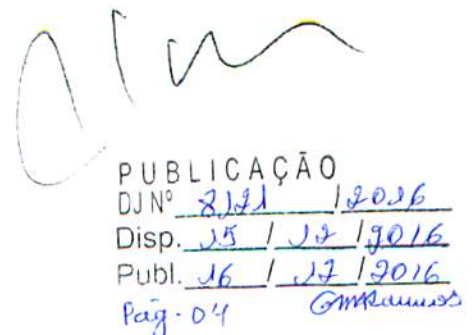 PUBLICAÇÃO
DJ Nº 8121 / 2016
Disp. 15 / 12 / 2016
Publ. 16 / 12 / 2016
Pág - 04